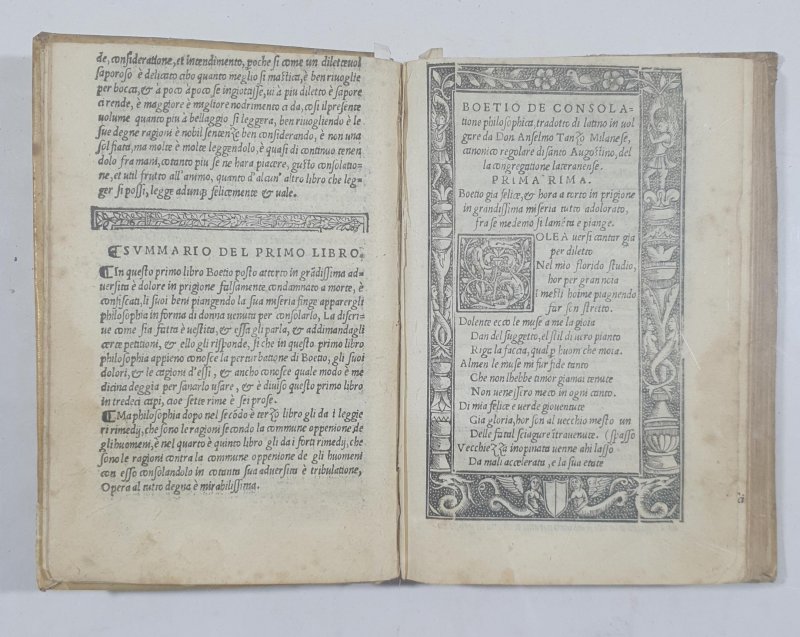 de, consideratione, et intendimento, poche si come un diletevol
saporoso è delicato cibo quanto meglio si mastica, è ben rivoglie
per bocca, & à poco à poco se ingiotisse, vi à piu diletto è sapore
ci rende, è maggiore è migliore nodrimento ci da, cosi il presente
volume quanto piu à bellaggio si leggera, ben rivogliendo è le
sue degne ragioni è nobil sentenze ben considerando, è non una
sol fiata, ma molte è molte leggendolo, è quasi di continuo tenen
dolo fra mani, cotanto piu se ne hara piacere, gusto consolatio=
ne, et util frutto all'animo, quanto d'alcun' altro libro che leg=
ger si possi, legge adunqȝ felicemente & vale.
SVMMARIO DEL PRIMO LIBRO.
In questo primo libro Boetio posto attorto in grãdissima ad=
versita è dolore in prigione falsamente condannato a morte, è
confiscati, li suoi beni piangendo la sua miseria finge apparergli
philosophia in forma di donna venuta per consolarlo, La discri=
ve come sia fatta è vestita, & essa gli parla, & adimandagli
certe petitioni, & ello gli risponde, si che in questo primo libro
philosophia appieno conosce la perturbatione di Boetio, gli suoi
dolori, & le cagioni d'essi, & ancho conosce quale modo è me
dicina deggia per sanarlo usare, & è diviso questo primo libro
in tredeci capi, cioe sette rime è sei prose.
Ma philosophia dopo nel secõdo è terzo libro gli da i leggie
ri rimedij, che sono le ragioni secondo la commune oppenione de
gli huomeni, è nel quarto è quinto libro gli da i forti rimedij, che
sono le ragioni contra la commune oppenione de gli huomeni
con esso consolandolo in cotanta sua adversita è tribulatione,
Opera al tutto degna è mirabilissima.
BOETIO DE CONSOLA=
tione philosophica, tradotto di latino in vol
gare da Don Anselmo Tanzo Milanese,
canonico regolare di santo Augostino, del
la congregatione lateranense.
PRIMA RIMA.
Boetio gia felice, & hora a torto in prigione
in grandissima miseria tutto adolorato,
fra se medemo si lamẽta e piange.
SOLEA versi cantar gia
per diletto
Nel mio florido studio,
hor per gran noia
i mesti hoime piagnendo
far son stretto.
Dolente ecco le muse a me la gioia
Dan del suggetto, el stil di vero pianto
Riga la faccia, qual ꝑ huom che moia.
Almen le muse mi fur fide tanto
Che non lhebbe timor giamai tenute
Non venessero meco in ogni canto.
Di mia felice e verde gioventute
Gia gloria, hor son al vecchio mesto un
Delle fatal sciagure itravenute. (spasso
Vecchiezza inopinata venne ahi lasso
Da mali accelerata, e la sua etate